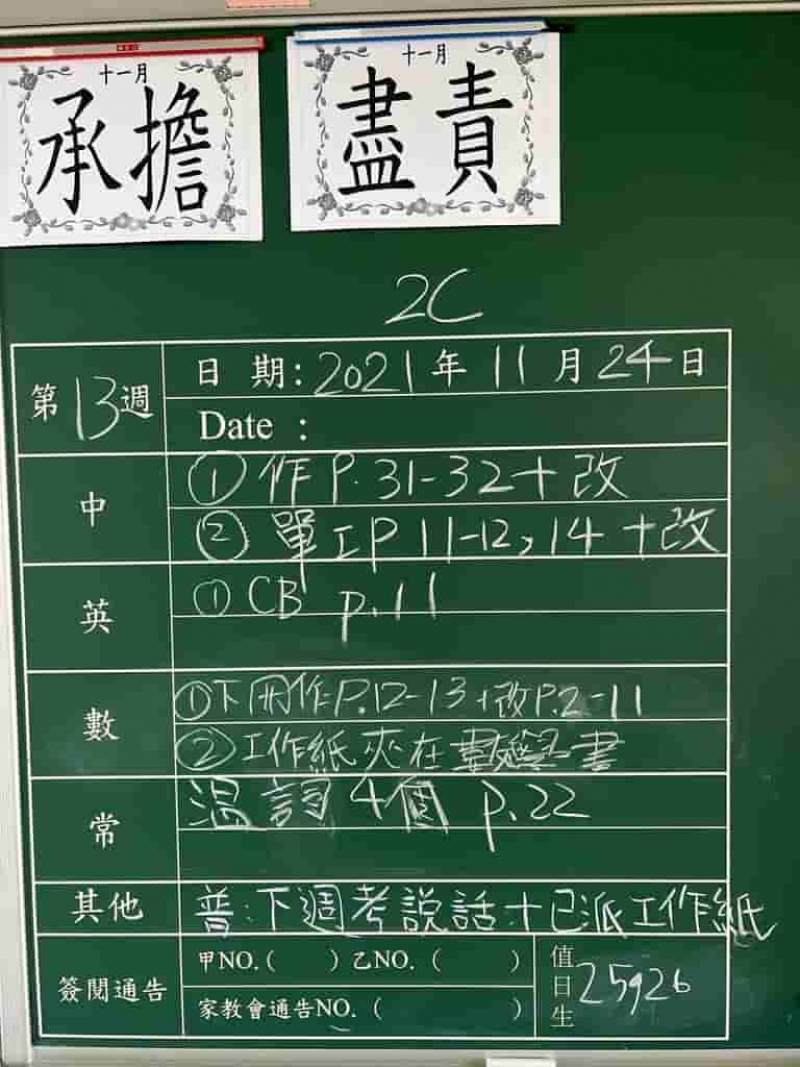 十一月
承擔
十一月
盡責
2C
第13週
日 期：2021年 11月24日
Date ：
中
① 作P.31-32+改
② 單工P 11-12,14 +改
英
① CB p.11
數
①下冊作P.12-13+改P.2-11
②工作紙夾在數學書
常
溫詞4個 p.22
其他
普：下週考說話+已派工作紙
簽閱通告
甲NO.（ ）乙NO.（ ）
家教會通告NO.（ ）
值日生